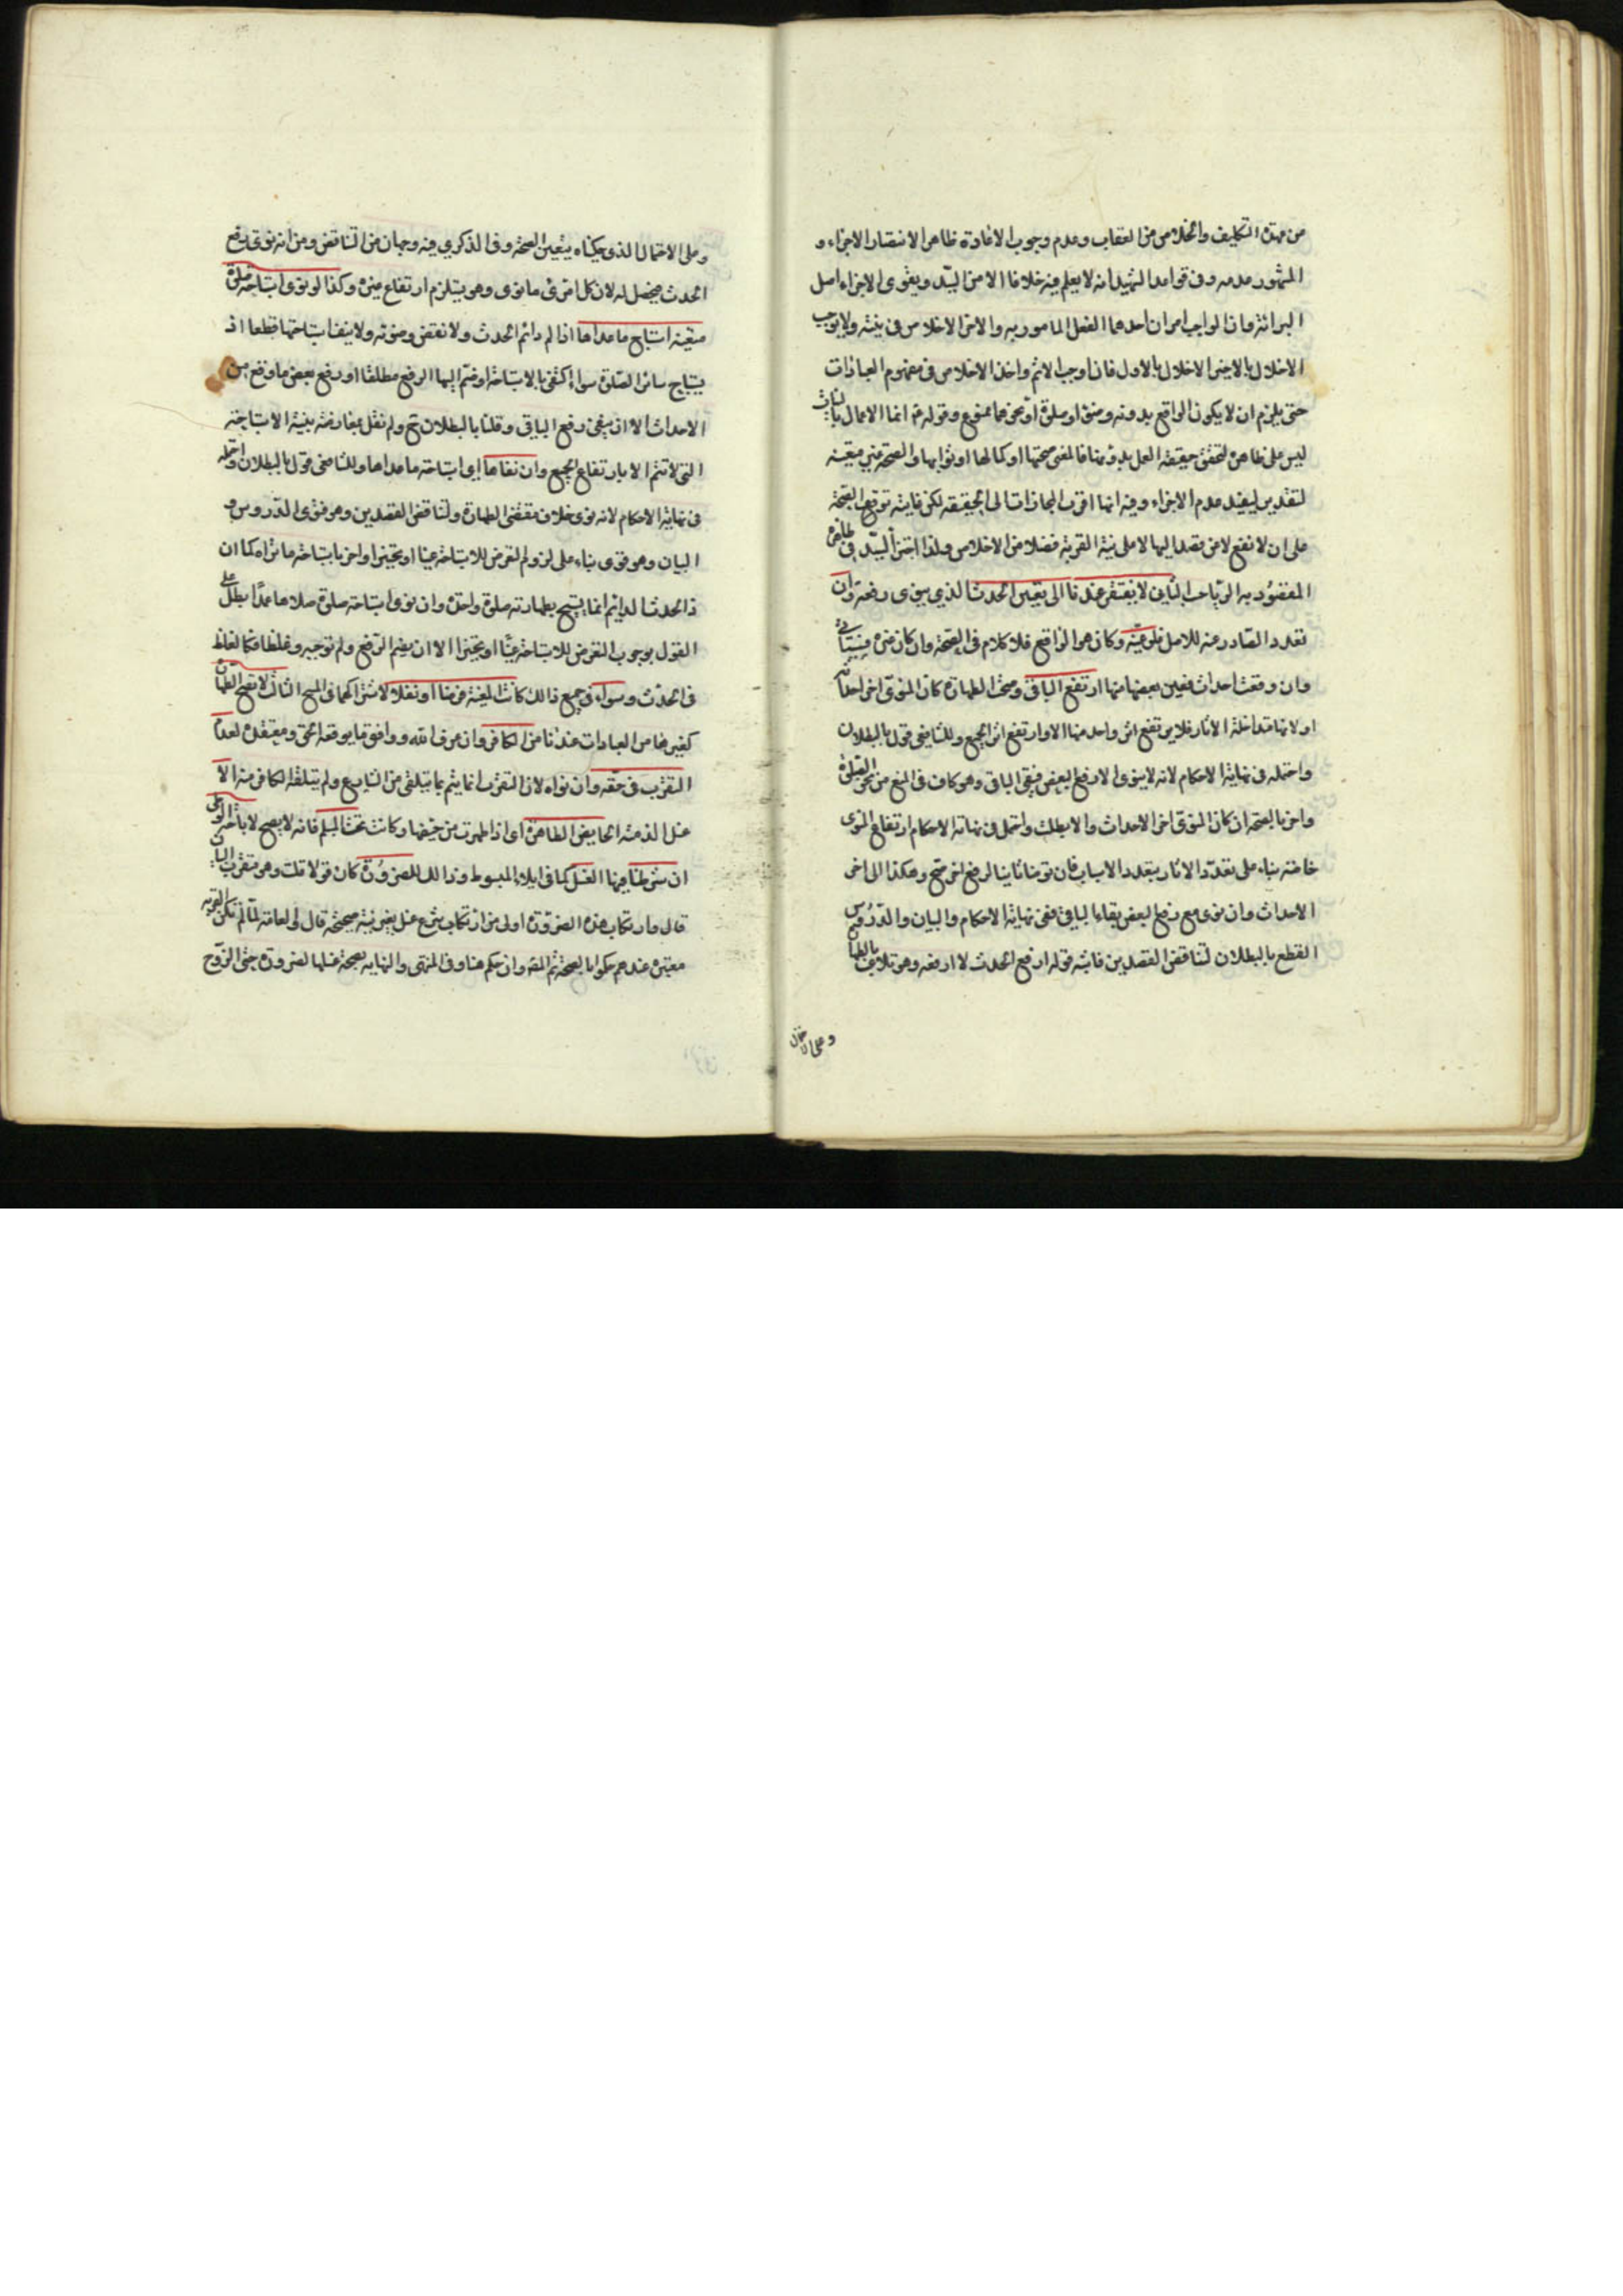 من عهدة التكليف والخلاص من العقاب وعدم وجوب الاعادة ظاهر الانتصار الاجزاء و
المشهور عدمه وفي قواعد الشهيد انه لا يعلم فيه خلافا الا من السيّد ويقوى الاجزاء اصل
البرائة وان الواجب امران احدهما الفعل المامور به والاخر الاخلاص في نيته ولا يوجب
الاخلال بالاخير الاخلال بالاول فان اوجب الاثم واخذ الاخلاص في مفهوم العبادات
حتى يلزم ان لا يكون الواقع بدونه وضوء او صلوة او نحوهما ممنوع وقوله ع انما الاعمال بالنيات
ليس على ظاهره لتحقق حقيقة العمل بدونها فالمعنى صحتها او كمالها او ثوابها والصحة غير متعينة
لتقدير ليفيد عدم الاجزاء وفيه انها اقرب المجازات الى الحقيقة لكن غايته توقف الصحة
على ان لا تقع لا عن قصد اليها لا على نية القربة فضلا من الاخلاص ولذا اجتزأ السيّد في ظاهره
المقصود به الريا الباب الثاني لا يفتقر عندنا الى تعيين الحدث الذي ينوى رفعه وان
تعدد الصادر عنه للاصل فلو عيّنه وكان هو الواقع فلا كلام في الصحة وان كان غيره فسيأتي
وان وقعت احداث فعين بعضها منها ارتفع الباقي وصحت الطهارة كان المنوى اخر احداثه
او لا لانها متداخلة الاثار فلا يرتفع اثر واحد منها الا وارتفع اثر الجميع وللشافعي قول بالبطلان
واحتمله في نهاية الاحكام لانه لا ينوى الا رفع البعض فيبقى الباقي وهو كاف في المنع من نحو الصلوة
واخر بالصحة ان كان المنوى اخر الاحداث والا بطلت واحتمل في نهاية الاحكام ارتفاع المنوى
خاصة بناء على تعدّد الاثار بتعدد الاسباب فان توضأ ثانيا لرفع اخر صح وهكذا الى اخر
الاحداث وان نوى مع رفع البعض بقاء الباقي ففي نهاية الاحكام والبيان والدّروس
القطع بالبطلان لتناقض القصدين فانه قوله ارفع الحدث لا ارفعه وهو تلاعب بالطهارة
وعلى الاحتمال
وعلى الاحتمال الذي حكيناه يتعين الصحة وفي الذكرى فيه وجهان من التناقض ومن انه نوى رفع
الحدث فيحصل له لان لكل امرئ ما نوى وهو يستلزم ارتفاع غيره وكذا لو نوى استباحة صلوة
معيّنة استباح ما عداها اذا لم دائم الحدث ولا نقض وضوئه ولا ينف استباحتها قطعا اذ
يستباح سائر الصلوة سواء اكتفى بالاستباحة او ضم اليها الرفع مطلقا او رفع بعض ما وقع من
الاحداث الا ان ينفي رفع الباقي وقلنا بالبطلان ح ولم نقل بمعارضته بنية الاستباحة
التي لا تتم الا بارتفاع الجميع وان نفاها اي استباحة ما عداها وللشافعي قول بالبطلان واحتمله
في نهاية الاحكام لانه نوى خلاف مقتضى الطهارة ولتناقض القصدين وهو فتوى الدّروس و
البيان وهو قوى بناء على لزوم التعرض للاستباحة عينا او تخييرا واخر باستباحة ما نواه كما ان
ذا الحدث الدائم انما يستبيح بطهارته صلوة واحدة وان نوى استباحة صلوة صلاها عمدا بطل على
القول بوجوب التعرض للاستباحة عينًا او تخييرا الا ان يضم الرفع ولم نوجبه وغلطا فكالغلط
في الحدث وسواء في جميع ذالك كانت المعينة فرضا او نفلا لاشتراكهما في المبيح الثالث لا تصح الطهارة
كغيرها من العبادات عندنا من الكافر وان عرف الله ووافق ما يوقعه الحق ومعتقده لعدم
التقرّب في حقه وان نواه لان التقرب انما يتم بما يتلقى من الشارع ولم يتلقه الكافر منه الا
غسل الذمية الحايض الطاهرة اي اذا طهرت من حيضها وكانت تحت المسلم فانه لا يصح لاباحة الوطى
ان شرطنا فيها الغسل كما في ايلاء المبسوط وذالك للضرورة كان قولا قلت وهو متقرب البيان
قال وارتكاب هذه الضرورة اولى من ارتكاب شرع غسل بغير نية صحيحة قال والعامة لما لم تكن القربة
معتبرة عندهم حكوا بالصحة ثم المص وان حكم هنا وفي المنتهى والنهاية بصحة غسلها لضرورة حق الزوج